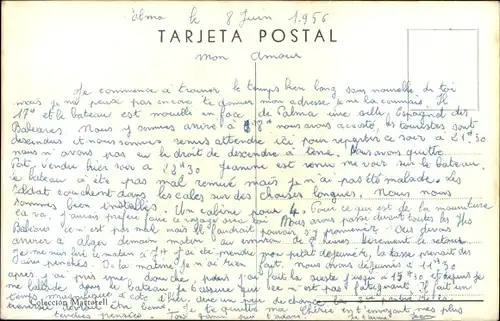 Palma le 8 Juin 1956
TARJETA POSTAL
mon amour
Je commence à trouver le temps bien long sans nouvelle de toi
mais je ne peux pas encore te donner mon adresse je ne la connais. Il
17H et le bateau est mouillé en face de Palma une ville Espagnol des
Baléares Nous y sommes arrivé à 8H nous avons acosté les touristes sont
descendus et nous sommes remis attendre ici pour repartir ce soir à 21H30
nous n'avons pas eu le droit de descendre à terre. Nous avons quitté
Port Vendre hier soir à 22H30 Jeanine est venu me voir sur le bateau.
Le bateau a été pas mal remué mais je n'ai pas été malade. Les
soldat couchent dans les cales sur des chaises longues. Nous nous
sommes bien installés. Un cabine pour 4. Pour ce qui est de la nourriture
ça va, j'aurais préféré faire le voyage avec toi. Nous avons passé devant toutes les îles
Baléares ce n'est pas mal mais il faudrait pouvoir s'y promener. Nous devons
arriver à Alger demain matin au environ de 8 heures. Vivement le retour.
Je me suis levé ce matin à 7H j'ai été prendre mon petit déjeuner, la tasse prenait des
De la matiné je n'ai rien fait. Nous avons déjeuner à 11H30
après j'ai pris une douche, puis j'ai fait la sieste jusqu'à 15H30 et depuis je
me ballade dans le bateau je t'assure que ce n'est pas fatigant. Il fait un
temps magnifique à côté d'hier, avec un peu de chance la
devrait être bonne. Je te quitte ma Chérie en t'envoyant mes plus
tendres pensées. Ton qui t'adore.
Colección Martorell